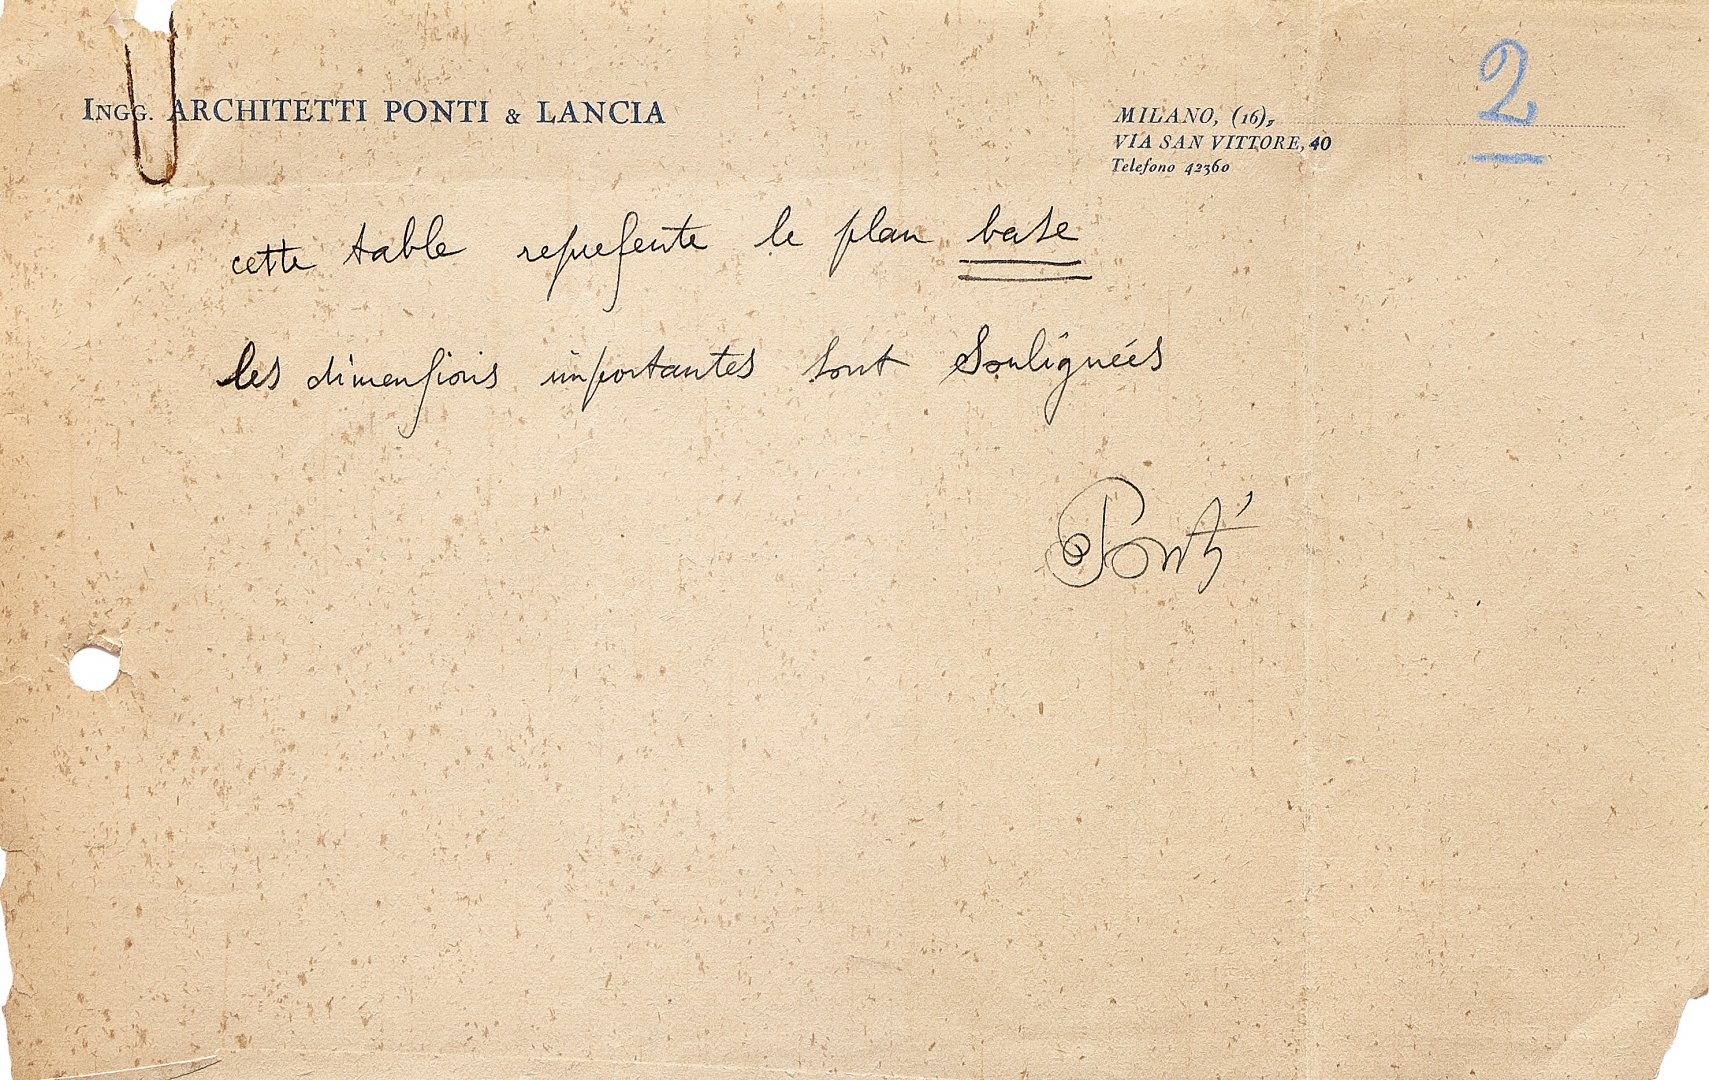 INGG. ARCHITETTI PONTI & LANCIA
MILANO, (16),
VIA SAN VITTORE, 40
Telefono 42360
2
cette table represente le plan base
les dimensions importantes sont soulignées
Ponti